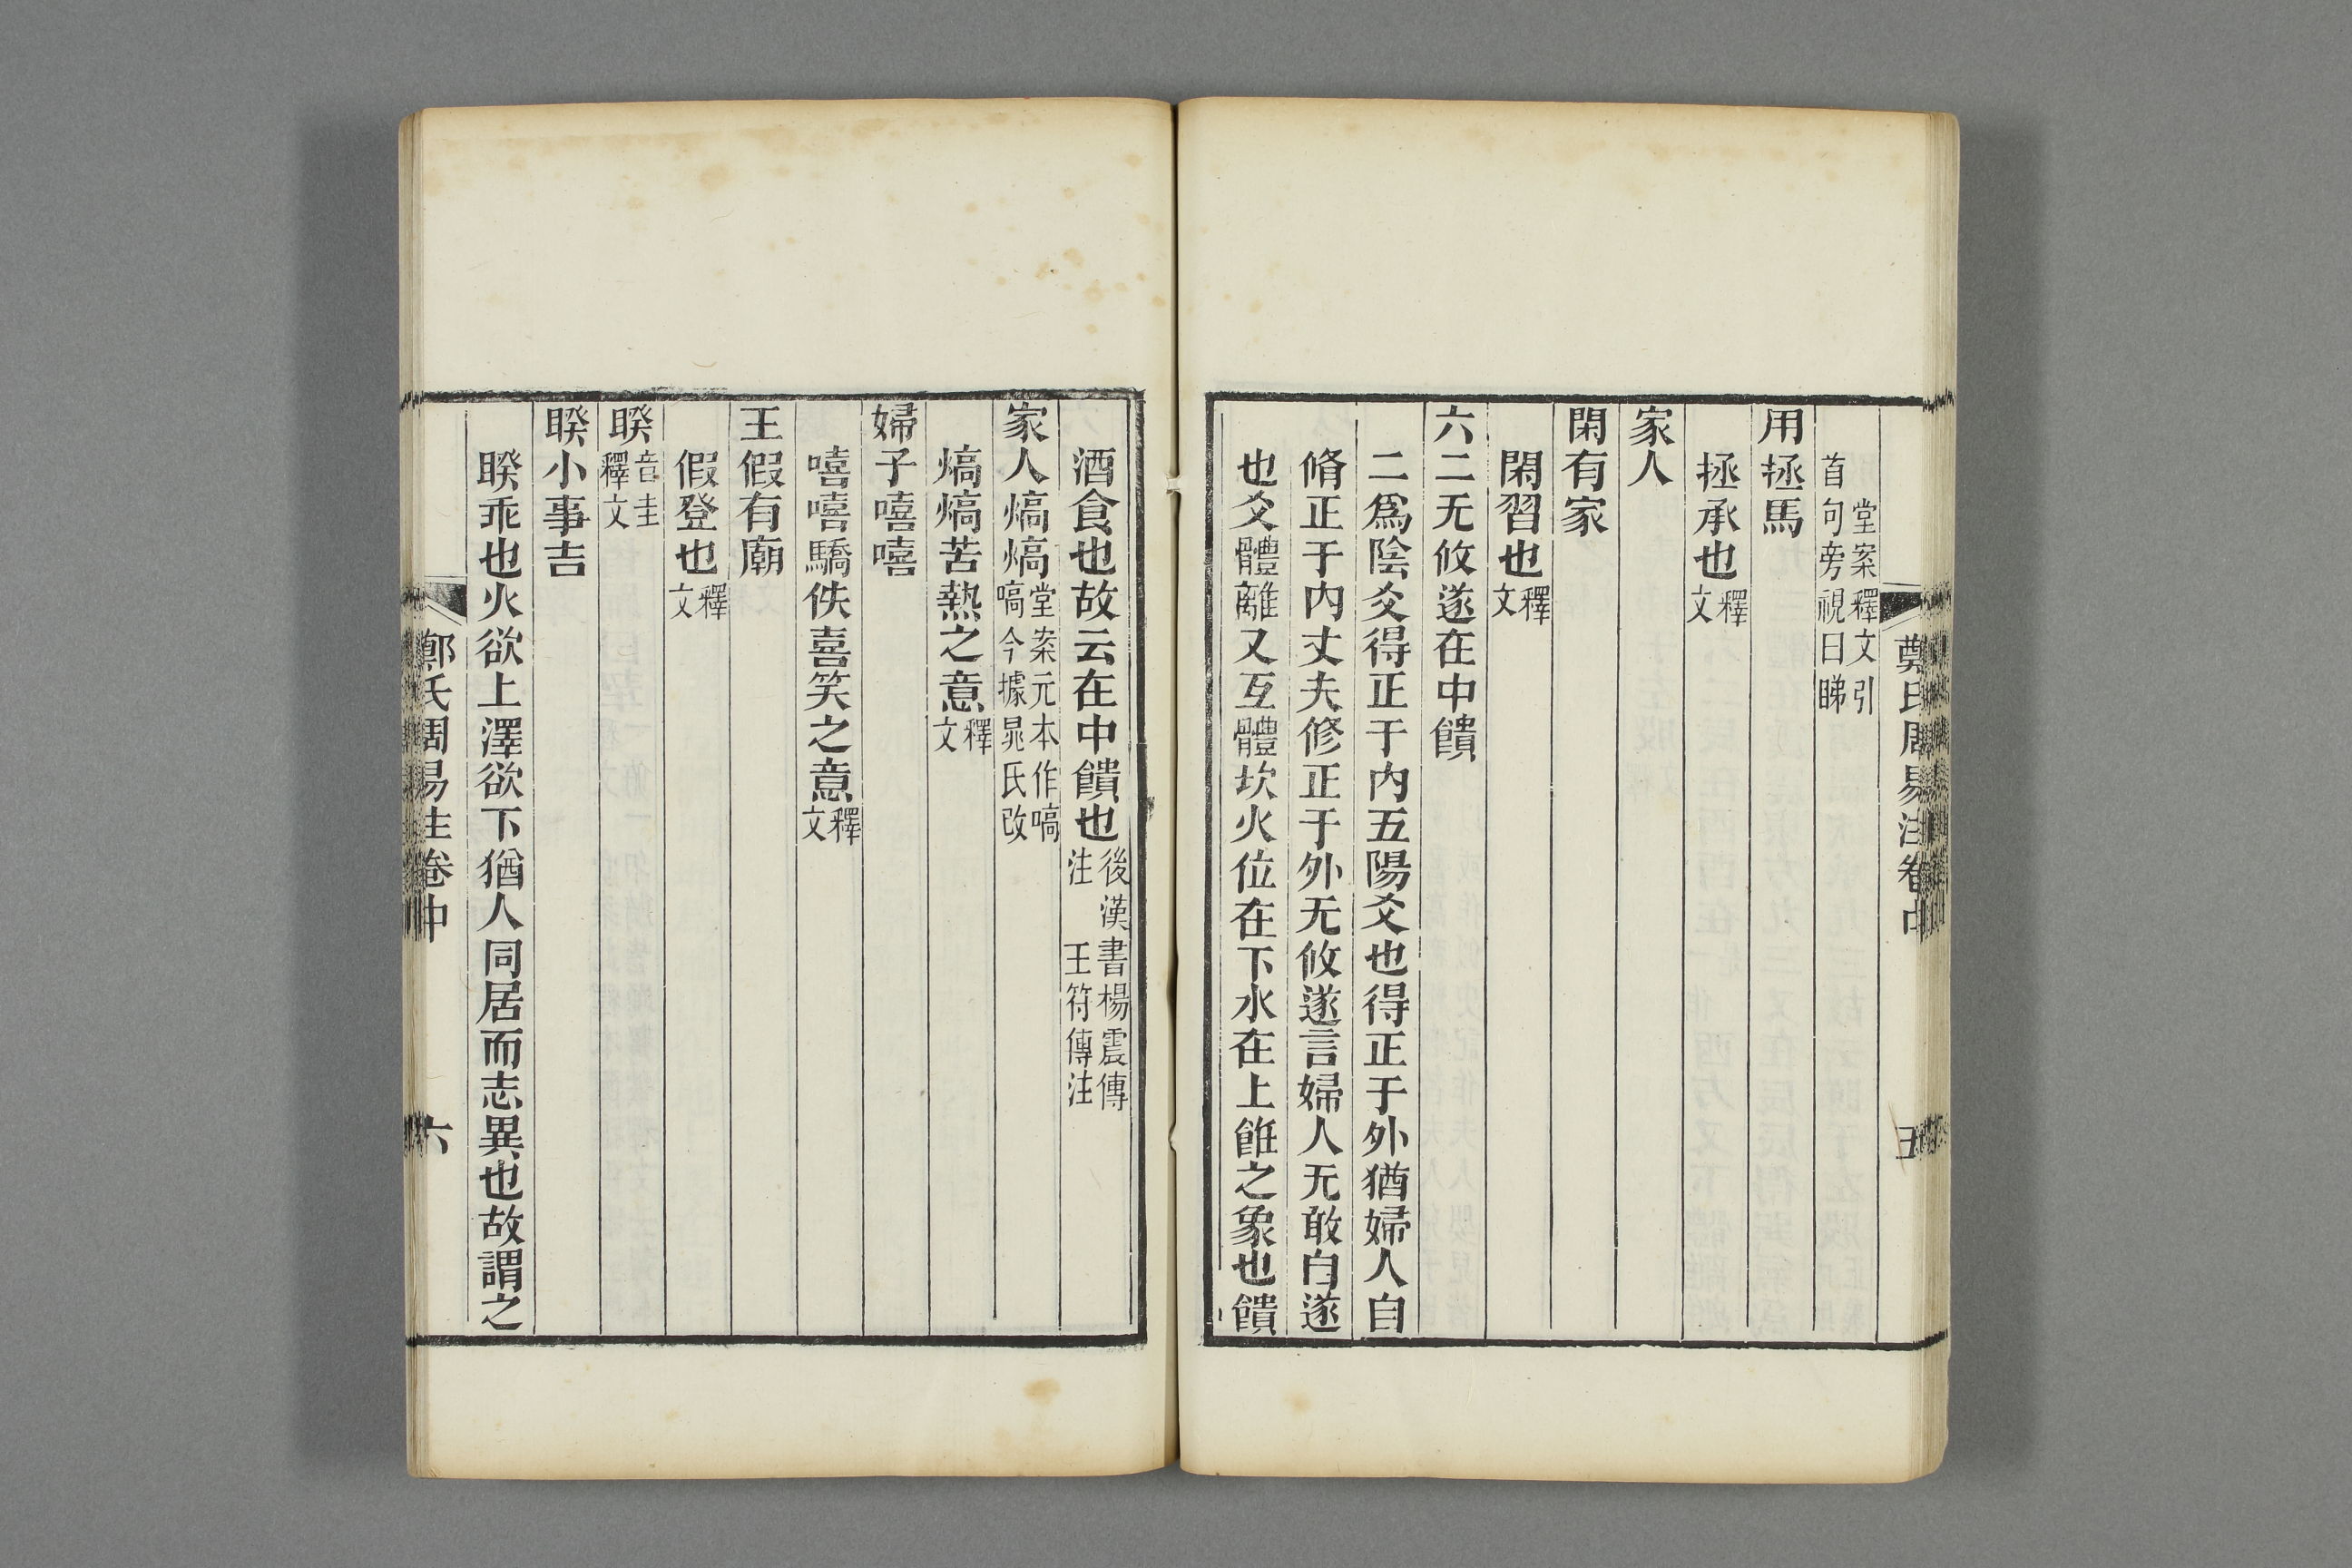 鄭氏周易注卷中
五
堂案釋文引
首句旁視曰睇
用拯馬
拯承也釋文
家人
閑有家
閑習也釋文
六二无攸遂在中饋
二爲陰爻得正于内五陽爻也得正于外猶婦人自
脩正于内丈夫修正于外无攸遂言婦人无敢自遂
也爻體離又互體坎火位在下水在上飪之象也饋
酒食也故云在中饋也後漢書楊震傳注 王符傳注
家人熇熇堂案元本作嗃嗃今據晁氏改
熇熇苦熱之意釋文
婦子嘻嘻
嘻嘻驕佚喜笑之意釋文
王假有廟
假登也釋文
睽音圭釋文
睽小事吉
睽乖也火欲上澤欲下猶人同居而志異也故謂之
鄭氏周易注卷中
六